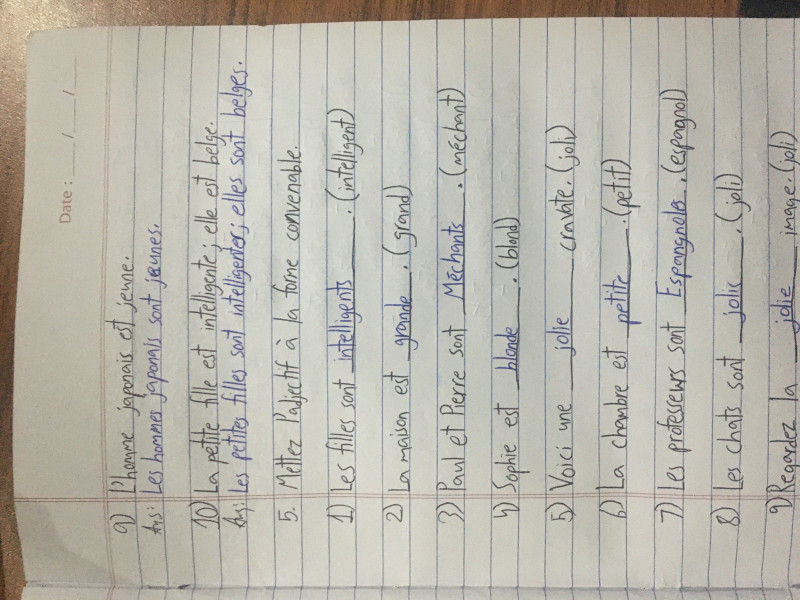 Date: ___/___/___
9) L'homme japonais est jeune.
Ans: Les hommes japonais sont jeunes.
10) La petite fille est intelligente; elle est belge.
Ans: Les petites filles sont intelligentes; elles sont belges.
5. Mettez l'adjectif à la forme convenable.
1) Les filles sont intelligents. (intelligent)
2) La maison est grande. (grand)
3) Paul et Pierre sont Méchants. (méchant)
4) Sophie est blonde. (blond)
5) Voici une jolie cravate. (joli)
6) La chambre est petite. (petit)
7) Les professeurs sont Espangnoles. (espagnol)
8) Les chats sont jolis. (joli)
9) Regardez la jolie image. (joli)